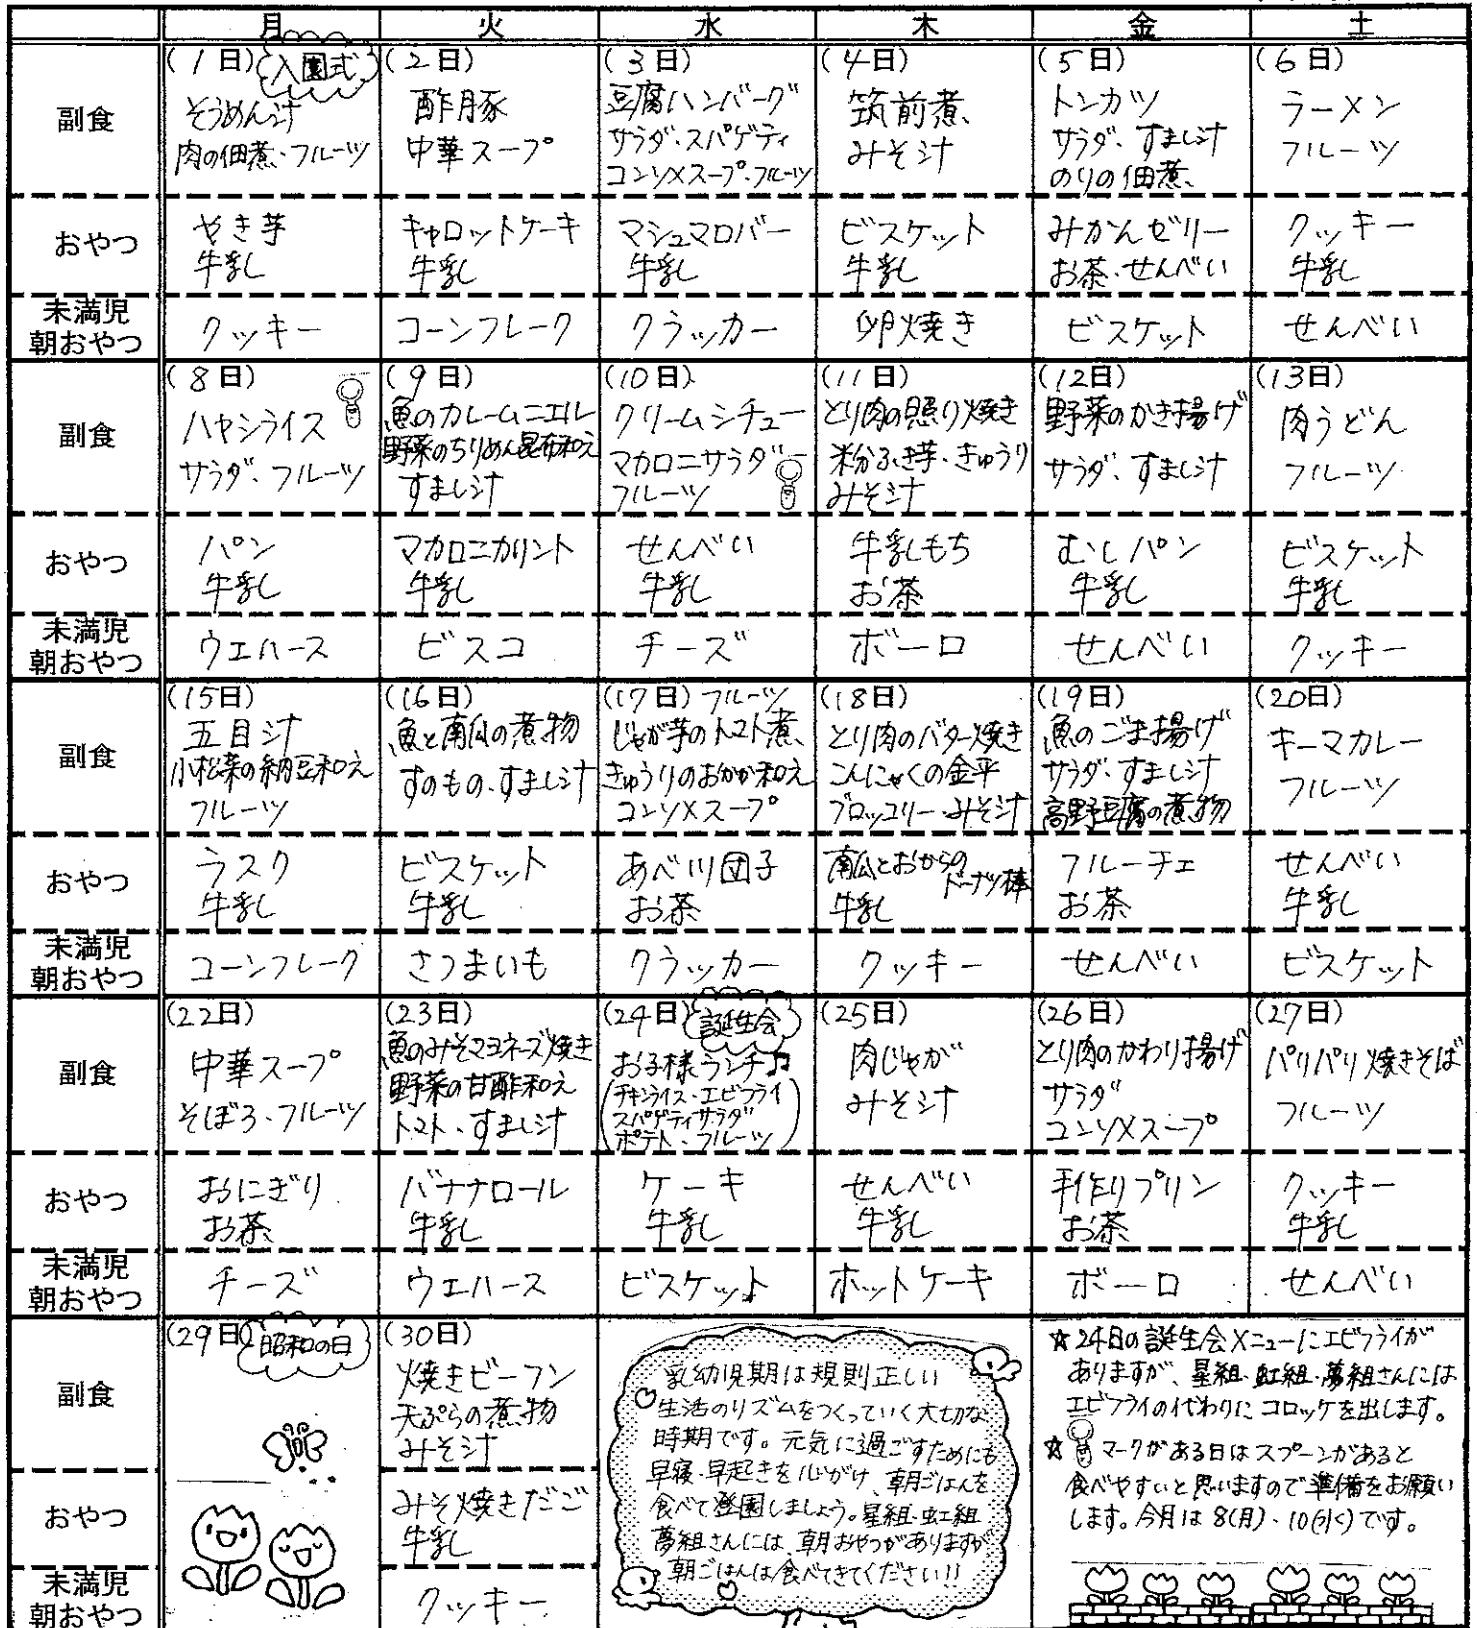 月 火 水 木 金 土
副食
(1日) 入園式
そうめん汁
肉の佃煮・フルーツ
(2日)
酢豚
中華スープ
(3日)
豆腐ハンバーグ
サラダ・スパゲティ
コンソメスープ・フルーツ
(4日)
筑前煮
みそ汁
(5日)
トンカツ
サラダ・すまし汁
のりの佃煮
(6日)
ラーメン
フルーツ
おやつ
やき芋
牛乳
キャロットケーキ
牛乳
マシュマロバー
牛乳
ビスケット
牛乳
みかんゼリー
お茶・せんべい
クッキー
牛乳
未満児
朝おやつ
クッキー
コーンフレーク
クラッカー
卵焼き
ビスケット
せんべい
副食
(8日)
ハヤシライス
サラダ・フルーツ
(9日)
魚のカレームニエル
野菜のちりめん昆布和え
すまし汁
(10日)
クリームシチュー
マカロニサラダ
フルーツ
(11日)
とり肉の照り焼き
粉ふき芋・きゅうり
みそ汁
(12日)
野菜のかき揚げ
サラダ・すまし汁
(13日)
肉うどん
フルーツ
おやつ
パン
牛乳
マカロニカリント
牛乳
せんべい
牛乳
牛乳もち
お茶
むしパン
牛乳
ビスケット
牛乳
未満児
朝おやつ
ウエハース
ビスコ
チーズ
ボーロ
せんべい
クッキー
副食
(15日)
五目汁
小松菜の納豆和え
フルーツ
(16日)
魚と南瓜の煮物
すのもの・すまし汁
(17日) フルーツ
じゃが芋のトマト煮
きゅうりのおかか和え
コンソメスープ
(18日)
とり肉のバター焼き
こんにゃくの金平
ブロッコリー・みそ汁
(19日)
魚のごま揚げ
サラダ・すまし汁
高野豆腐の煮物
(20日)
キーマカレー
フルーツ
おやつ
ラスク
牛乳
ビスケット
牛乳
あべ川団子
お茶
南瓜とおからの
ドーナツ棒
牛乳
フルーチェ
お茶
せんべい
牛乳
未満児
朝おやつ
コーンフレーク
さつまいも
クラッカー
クッキー
せんべい
ビスケット
副食
(22日)
中華スープ
そぼろ・フルーツ
(23日)
魚のみそマヨネーズ焼き
野菜の甘酢和え
トマト・すまし汁
(24日) 誕生会
お子様ランチ♫
(チキンライス・エビフライ
スパゲティサラダ
ポテト・フルーツ)
(25日)
肉じゃが
みそ汁
(26日)
とり肉のかわり揚げ
サラダ
コンソメスープ
(27日)
パリパリ焼きそば
フルーツ
おやつ
おにぎり
お茶
バナナロール
牛乳
ケーキ
牛乳
せんべい
牛乳
手作りプリン
お茶
クッキー
牛乳
未満児
朝おやつ
チーズ
ウエハース
ビスケット
ホットケーキ
ボーロ
せんべい
副食
(29日) 昭和の日
(30日)
焼きビーフン
天ぷらの煮物
みそ汁
おやつ
みそ焼きだご
牛乳
未満児
朝おやつ
クッキー
乳幼児期は規則正しい
生活のリズムをつくっていく大切な
時期です。元気に過ごすためにも
早寝・早起きを心がけ、朝ごはんを
食べて登園しましょう。星組・虹組
夢組さんには、朝おやつがありますが
朝ごはんは食べてきてください!!
☆24日の誕生会メニューにエビフライが
ありますが、星組・虹組・夢組さんには
エビフライの代わりにコロッケを出します。
☆ マークがある日はスプーンがあると
食べやすいと思いますので準備をお願い
します。今月は8(月)・10(水)です。